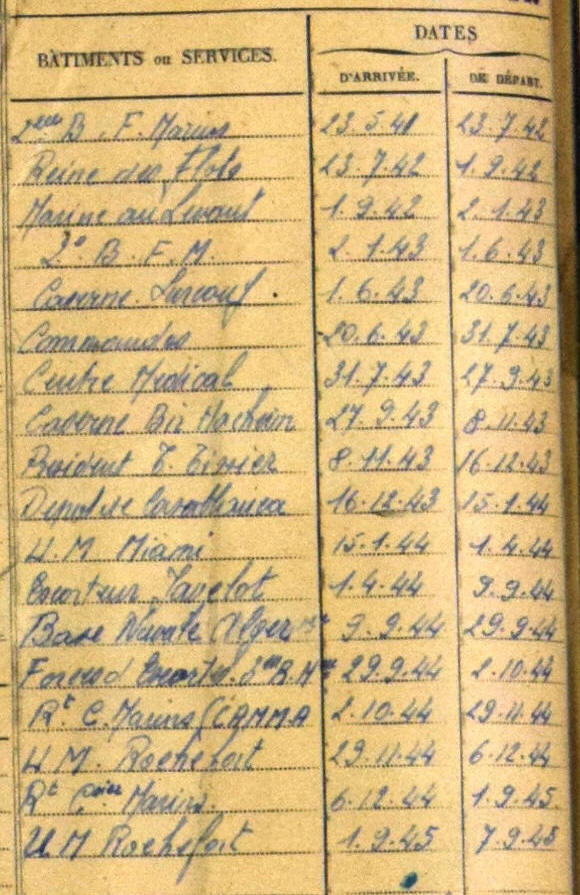 DATES
BÂTIMENTS ou SERVICES.
D'ARRIVÉE. DE DÉPART.
2eme B. F. Marins 23.5.41 23.7.42
Reine des Flots 23.7.42 1.9.42
Marine au Levant 1.9.42 2.1.43
2e B. F. M. 2.1.43 1.6.43
Caserne Surcouf. 1.6.43 20.6.43
Commandos 20.6.43 31.7.43
Centre Médical 31.7.43 27.9.43
Caserne Bir Hacheim 27.9.43 8.11.43
Président T. Tissier 8.11.43 16.12.43
Depot de Casablanca 16.12.43 15.1.44
U M Miami 15.1.44 1.4.44
Escorteur Javelot 1.4.44 9.9.44
Base Navale Alger 9.9.44 29.9.44
Forces d'Escorte. 3eme R.M 29.9.44 2.10.44
Rt C. Marins (CAMMA 2.10.44 29.11.44
U M. Rochefort 29.11.44 6.12.44
Rt Marins. 6.12.44 1.9.45.
U M Rochefort 1.9.45 7.9.45